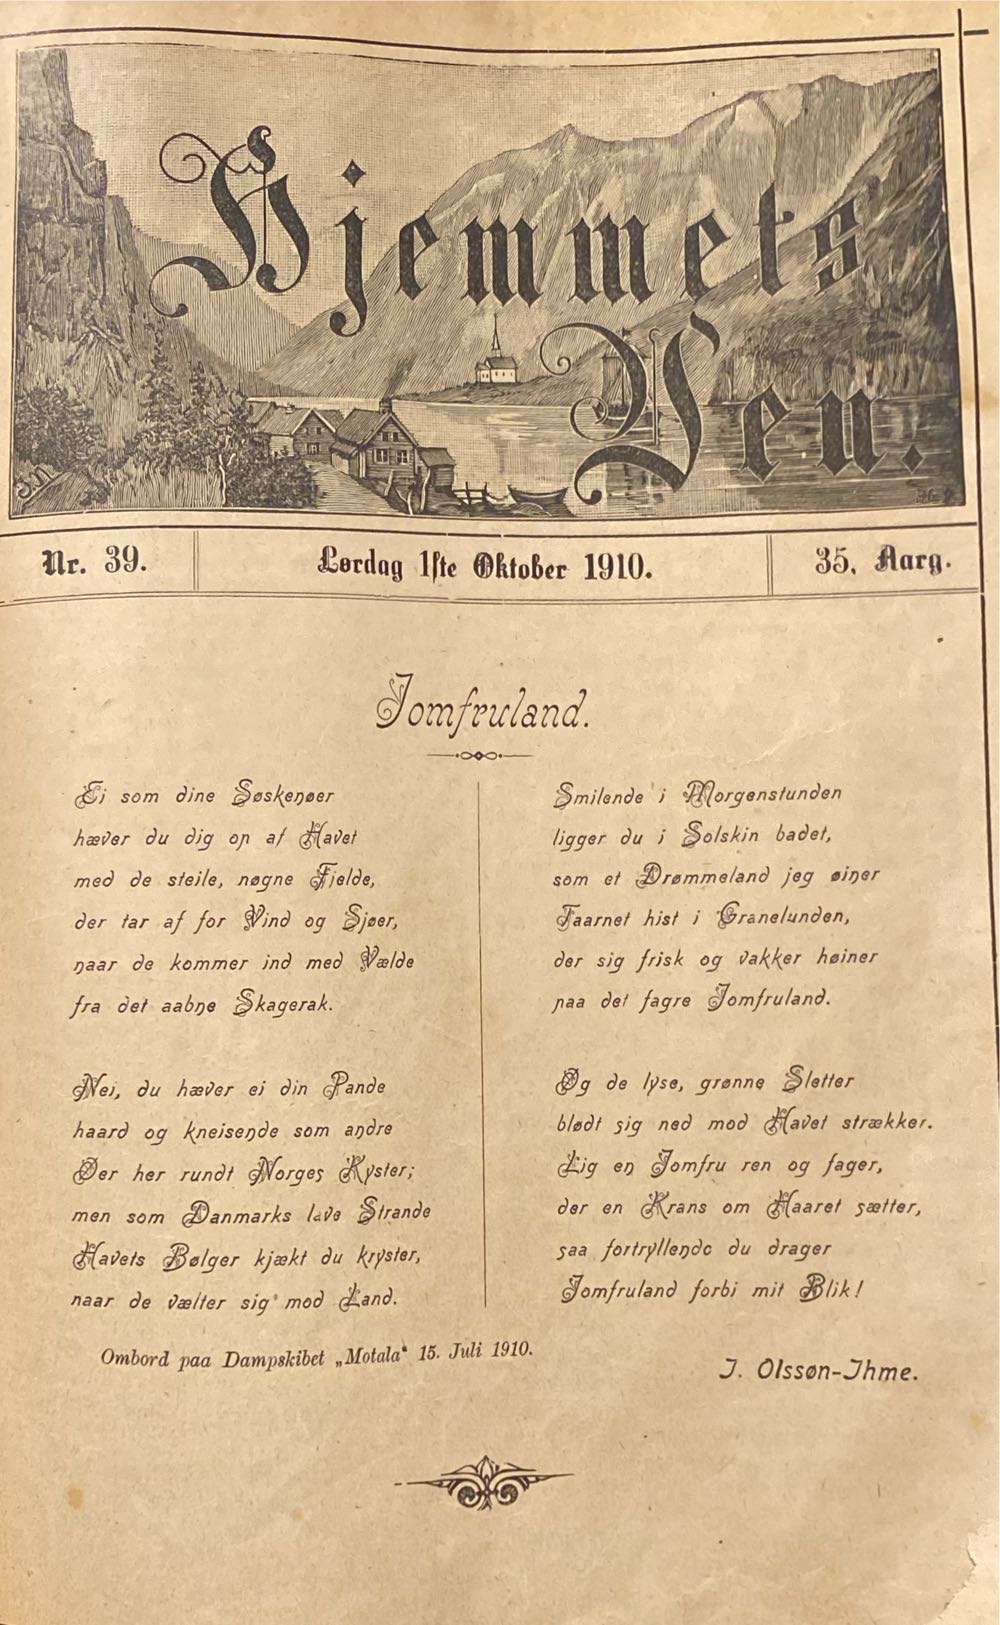 Hjemmets
Ven.
Nr. 39.
Lørdag 1ste Oktober 1910.
35. Aarg.
Jomfruland.
Ei som dine Søskenøer
hæver du dig op af Havet
med de steile, nøgne Fjelde,
der tar af for Vind og Sjøer,
naar de kommer ind med Vælde
fra det aabne Skagerak.
Nei, du hæver ei din Pande
haard og kneisende som andre
Øer her rundt Norges Kyster;
men som Danmarks lave Strande
Havets Bølger kjækt du kryster,
naar de vælter sig mod Land.
Smilende i Morgenstunden
ligger du i Solskin badet,
som et Drømmeland jeg øiner
Taarnet hist i Granelunden,
der sig frisk og vakker høiner
paa det fagre Jomfruland.
Og de lyse, grønne Sletter
blødt sig ned mod Havet strækker.
Lig en Jomfru ren og fager,
der en Krans om Haaret sætter,
saa fortryllende du drager
Jomfruland forbi mit Blik!
Ombord paa Dampskibet „Motala“ 15. Juli 1910.
J. Olssøn-Ihme.